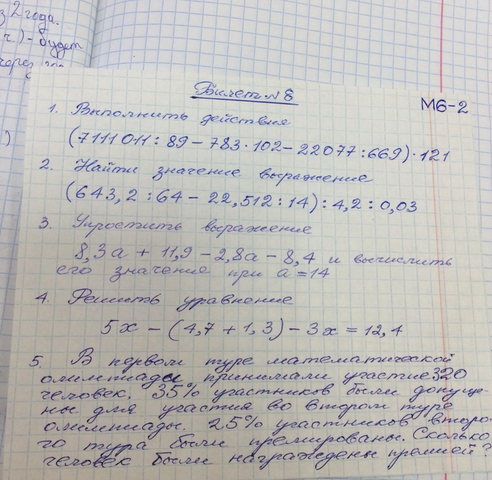 з 2 года.
ч) - будет
через
)
Билет №8
М6-2
1. Выполнить действия
(7111011 : 89 - 783 · 102 - 22077 : 669) · 121
2. Найти значение выражение
(643,2 : 64 - 22,512 : 14) : 4,2 : 0,03
3. Упростить выражение
8,3а + 11,9 - 2,8а - 8,4 и вычислить
его значение при а = 14
4. Решить уравнение
5х - (4,7 + 1,3) - 3х = 12,4
5. В первом туре математической
олимпиады принимали участие 320
человек. 35% участников были допуще-
ны для участия во втором туре
олимпиады. 25% участников второ-
го тура были премированы. Сколько
человек были награждены премией?